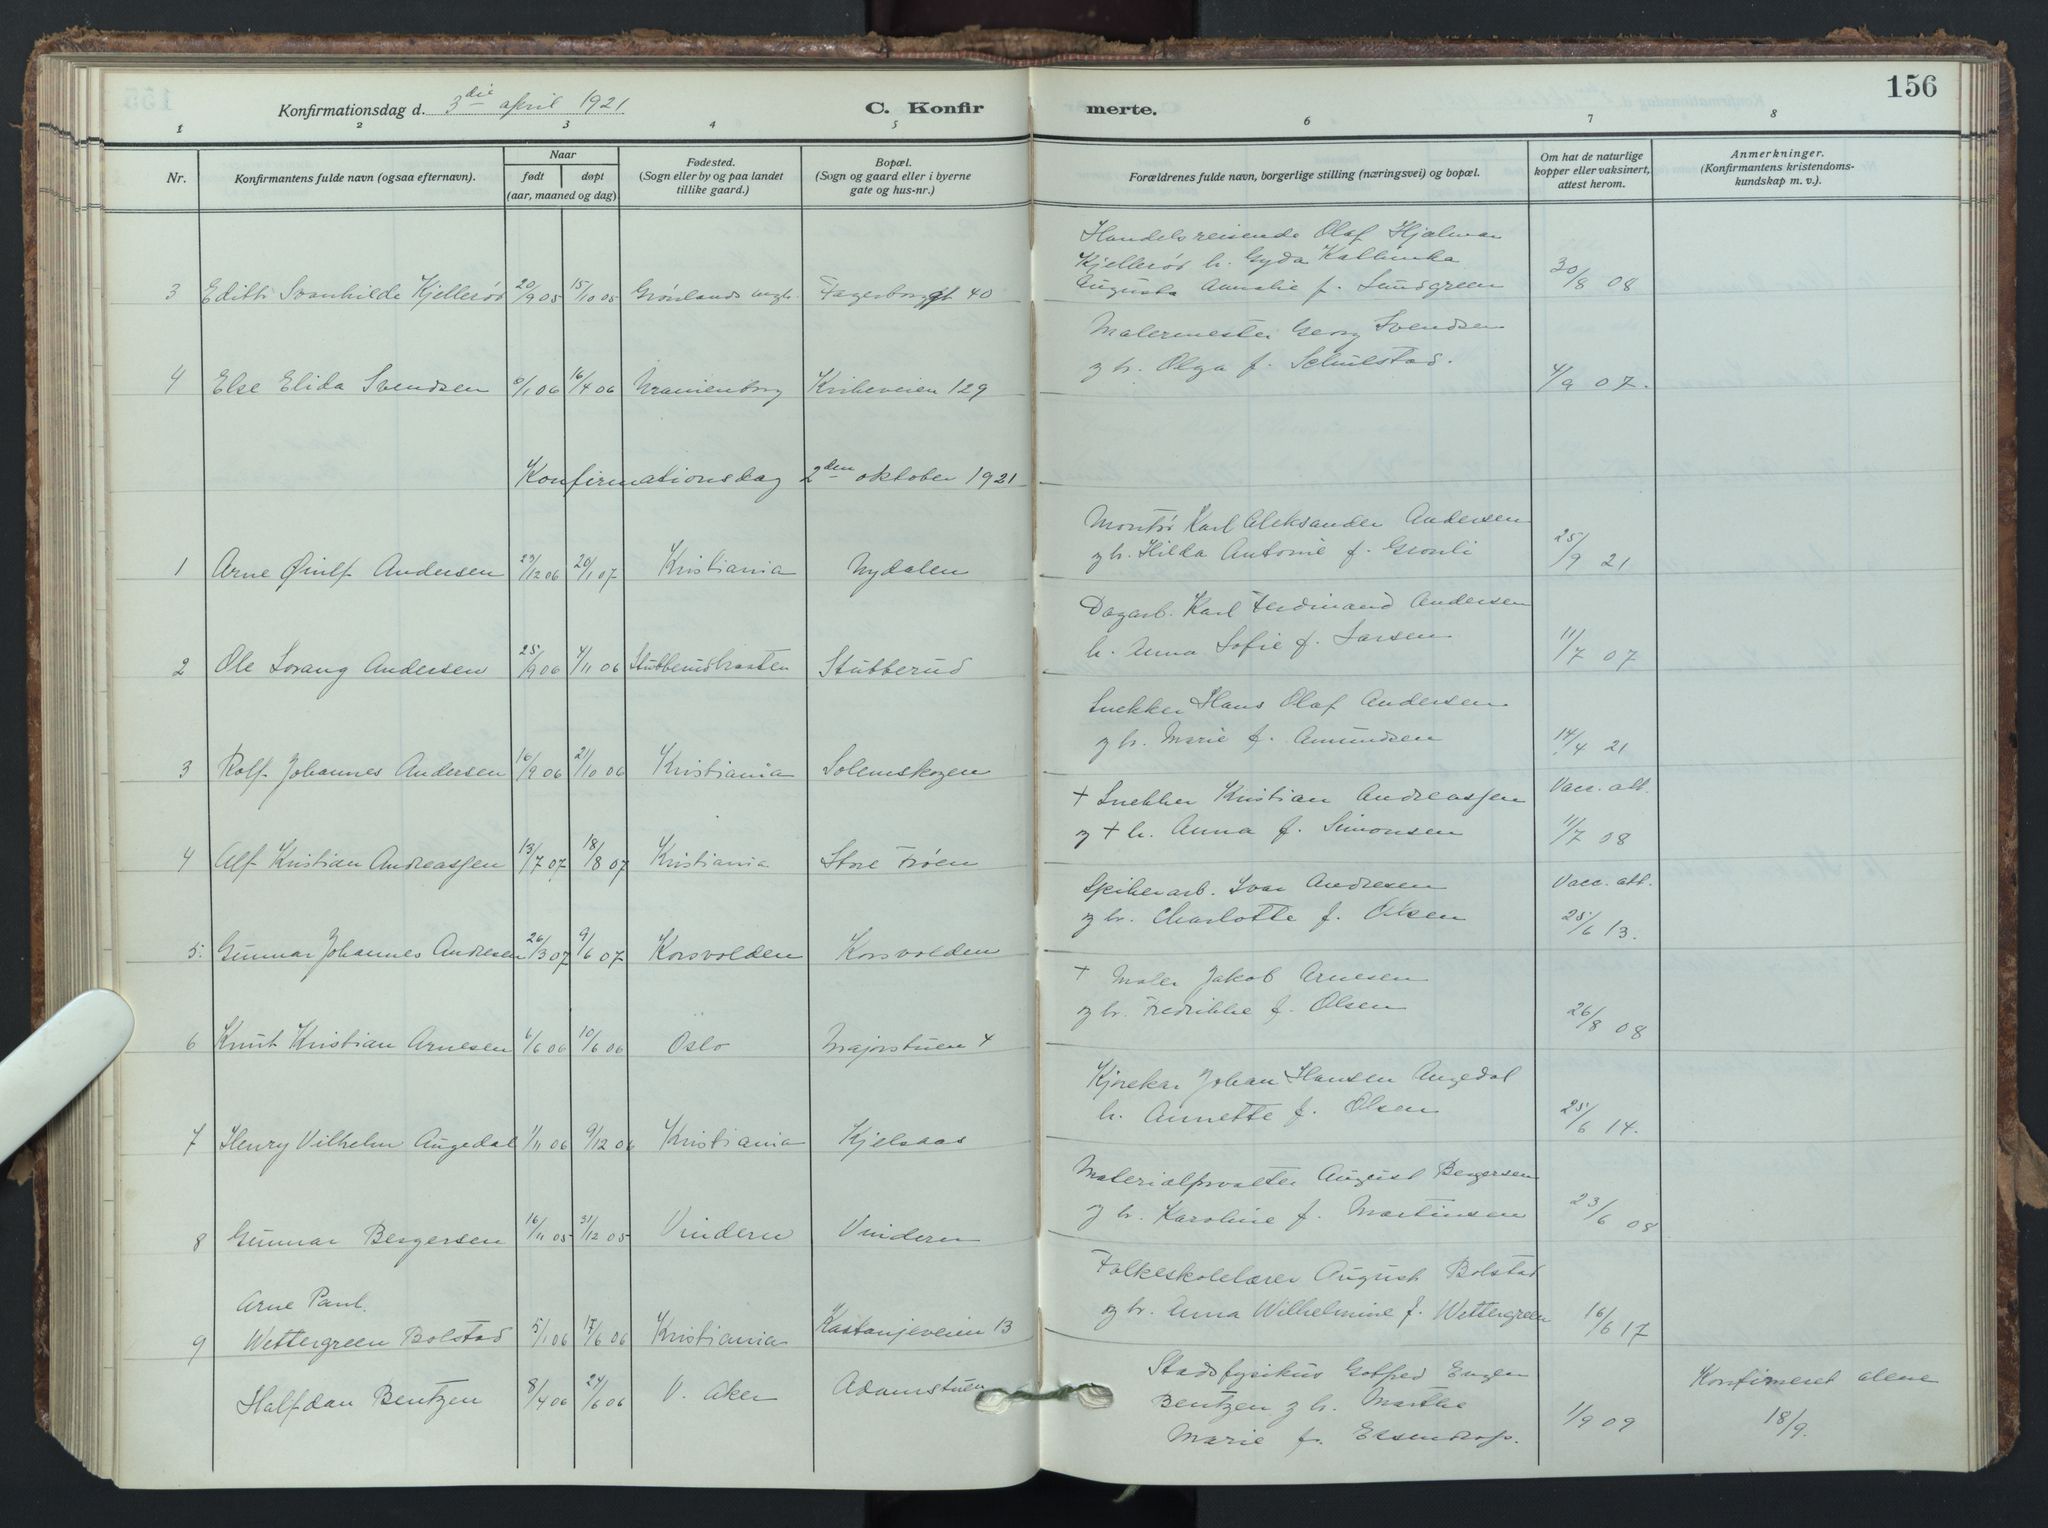 156
Konfirmationsdag d. 3die april 1921
C. Konfirmerte.
1 2 3 4 5 6 7 8
Nr.
Konfirmantens fulde navn (ogsaa efternavn).
Naar
født døpt
(aar, maaned og dag)
Fødested.
(Sogn eller by og paa landet
tillike gaard.)
Bopæl.
(Sogn og gaard eller i byerne
gate og hus-nr.)
Forældrenes fulde navn, borgerlige stilling (næringsvei) og bopæl.
Om hat de naturlige
kopper eller vaksinert,
attest herom.
Anmerkninger.
(Konfirmantens kristendoms-
kundskap m. v.).
Handelsreisende Olaf Hjalmar
Kjellerød h. Gyda Kathinka
Augusta Amalie f. Lundgreen
3 Edith Svanhilde Kjellerød 20/9 05 15/10 05 Grønlands mgh. Fagerborggt 40 30/8 08
Malermester Georg Svendsen
og h. Olga f. Schulstad.
4 Else Elida Svendsen /1 06 16/4 06 Uranienborg Kirkeveien 129 4/9 07.
Konfirmationsdag 2den oktober 1921
Montør Karl Aleksander Andersen
og h. Hilda Antonie f. Grønli
1 Arne Øiulf Andersen 27/12 06 20/1 07 Kristiania Nydalen 25/9 21
Dagarb. Karl Ferdinand Andersen
h. Anna Sofie f. Larsen
2 Ole Sorang Andersen 25/9 06 4/11 06 Stubberud Stubberud 11/7 07
Snekker Hans Olaf Andersen
og h. Marie f. Amundsen
3 Rolf Johannes Andersen 16/9 06 21/10 06 Kristiania Solemskogen 14/4 21
+ Snekker Kristian Andreassen Vacc. att.
og + h. Anna f. Simonsen
4 Alf Kristian Andreassen 13/7 07 18/8 07 Kristiania Store Frøen 11/7 08
Spikerarb. Ivar Andresen Vacc. att.
og h. Charlotte f. Olsen
5. Gunnar Johannes Andresen 26/3 07 9/6 07 Korsvolden Korsvolden 25/6 13.
+ Maler Jakob Arnesen
og h. Fredrikke f. Olsen
6 Knut Kristian Arnesen 6/6 06 10/6 06 Oslo Majorstuen 4 26/8 08
Kjørekar Johan Hansen Augedal
h. Annette f. Olsen
7 Henry Vilhelm Augedal 1/11 06 9/12 06 Kristiania Kjelsaas 25/6 14.
Materialforvalter August Bergersen
og h. Karoline f. Martinsen
8 Gunnar Bergersen 16/11 05 31/12 05 Vindern Vindern 23/6 08
Folkeskolelærer August Bolstad
og h. Anna Wilhelmine f. Wettergreen
Arne Paul
9 Wettergreen Bolstad 5/1 06 17/6 06 Kristiania Kastanjeveien 13 16/6 17
Stadsfysikus Gotfred Eugen
Halfdan Bentzen 8/4 06 24/6 06 V. Aker Adamstuen
Bentzen og h. Marthe
Marie f.
1/9 09
Konfirmeret alene
18/9.